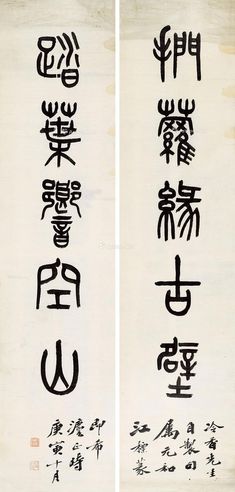 捫蘿緣古壁
冷香先生
自製句
屬元和
江標篆
踏葉響空山
即希
灋正時
庚寅十月